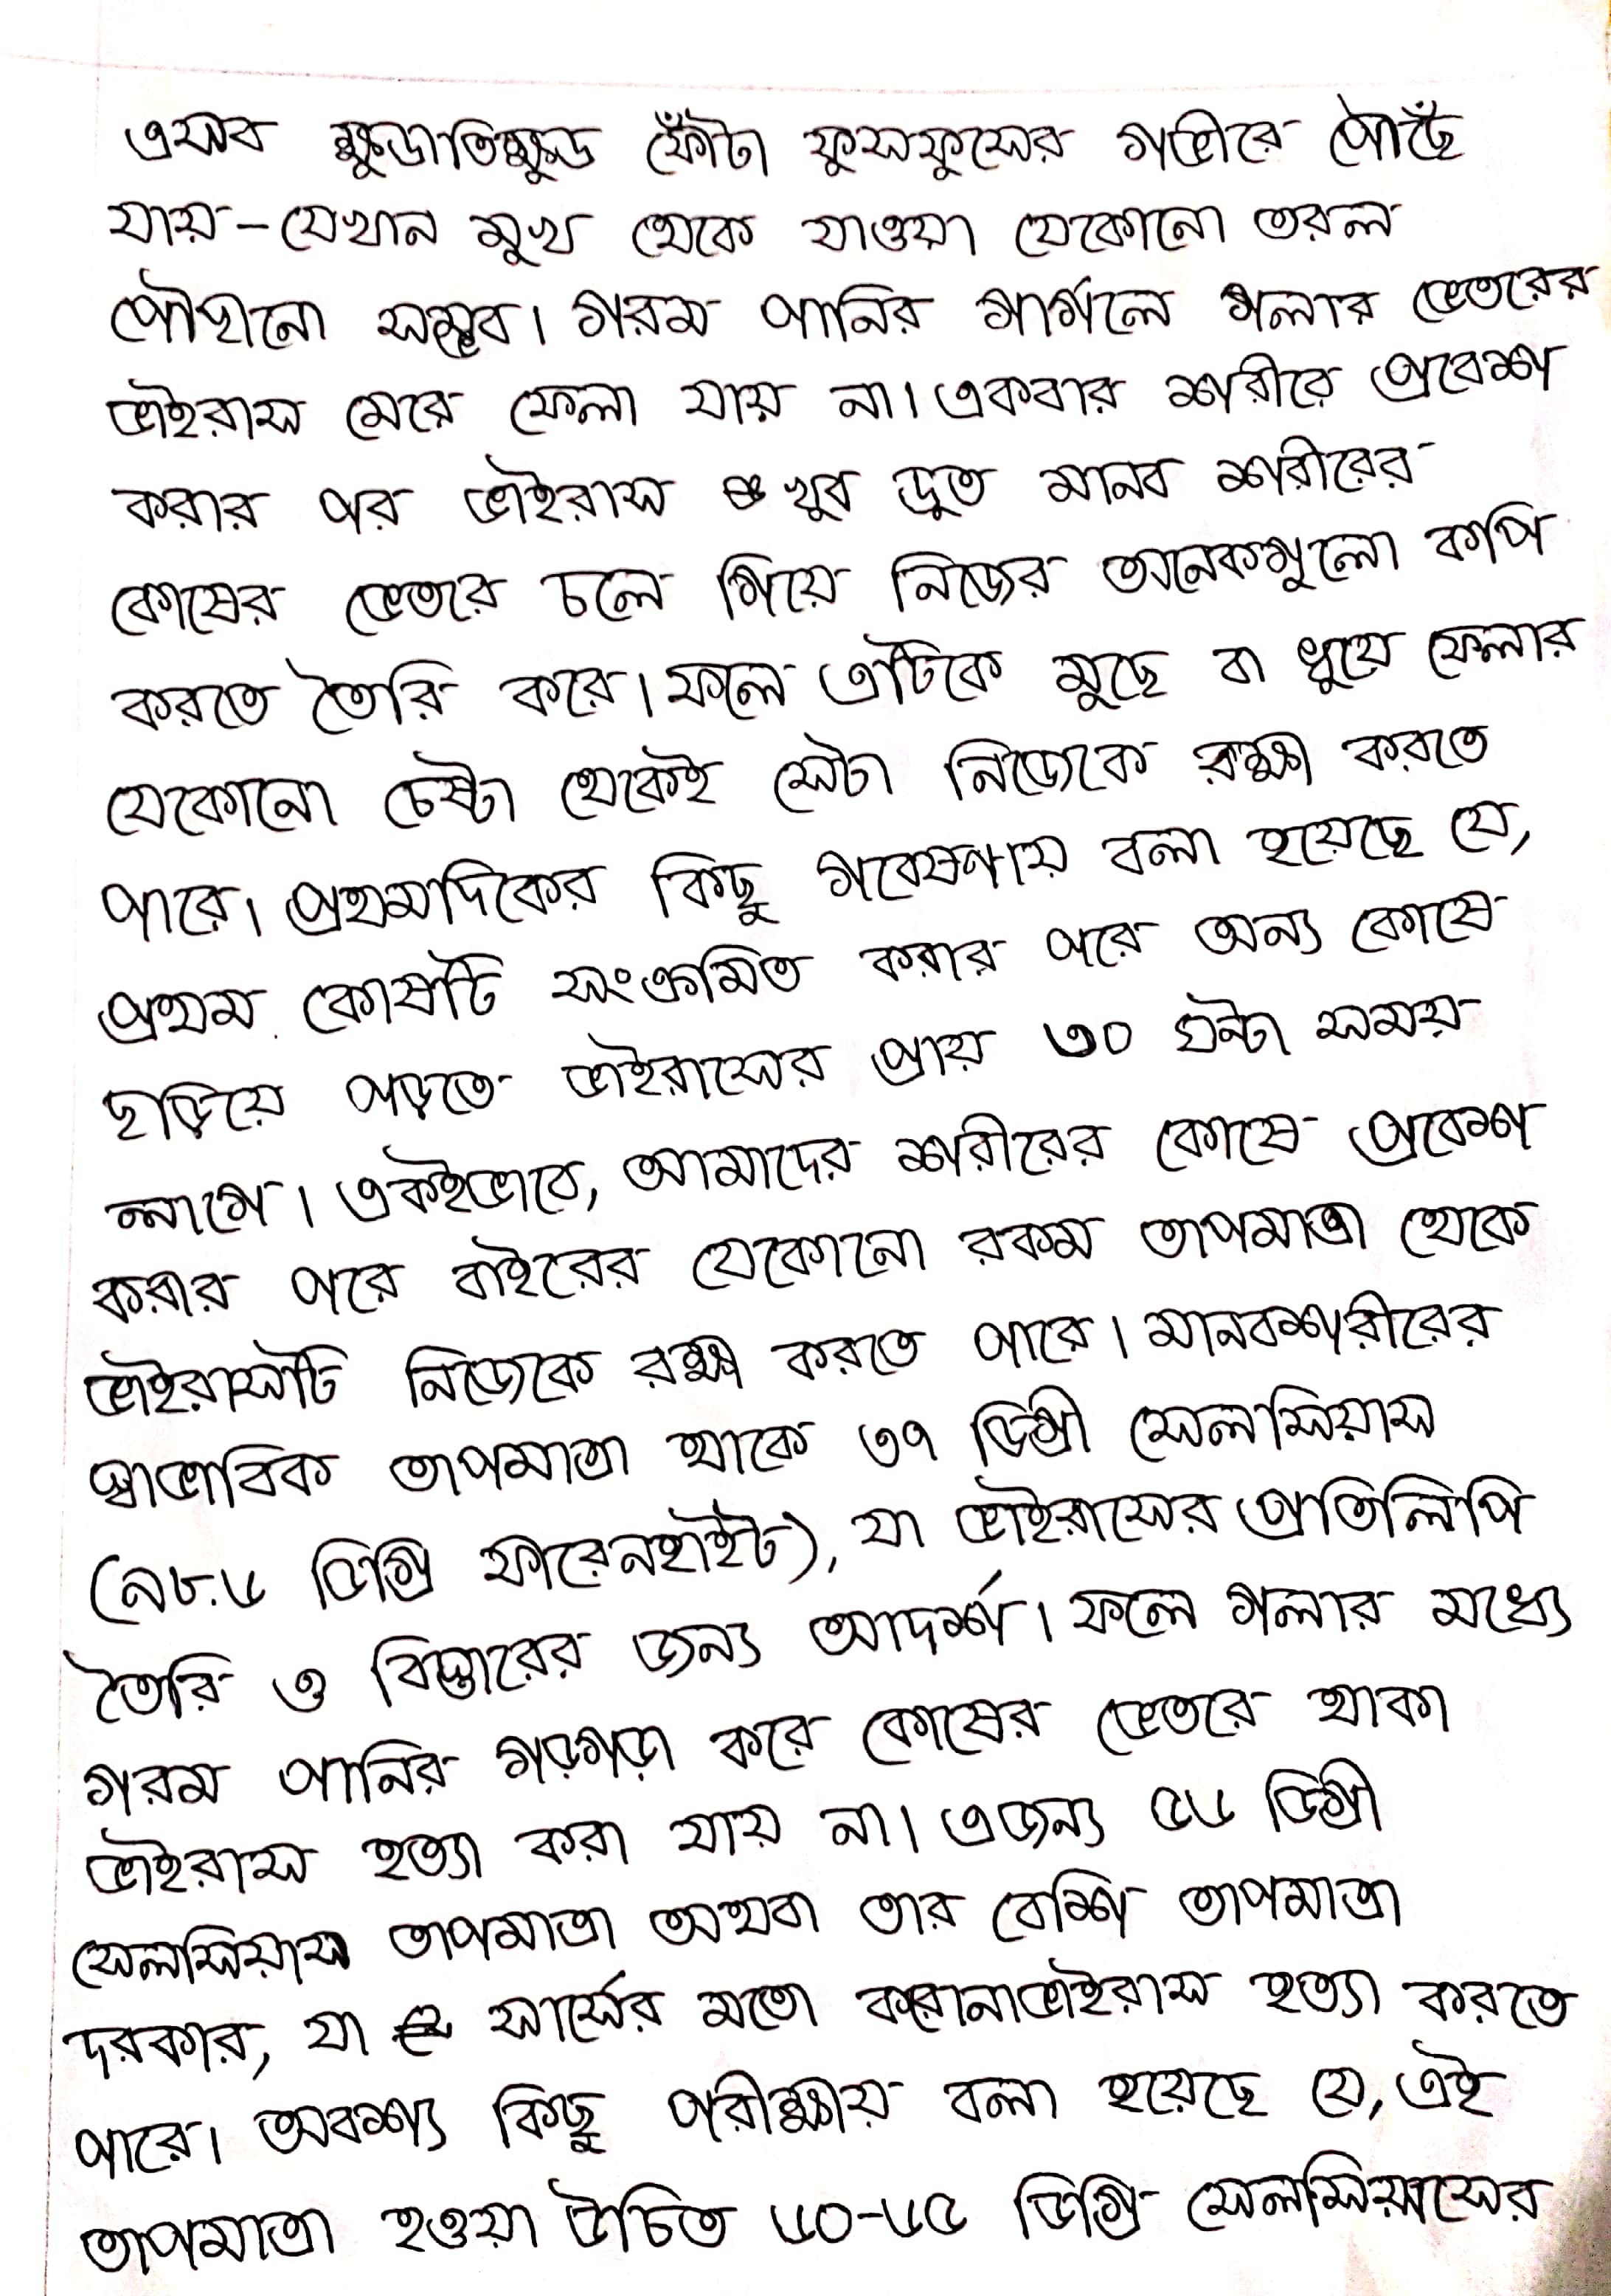 এসব ক্ষুডাতিক্ষুড ফোঁটা ফুসফুসের গভীরে পৌঁছে
যায়-যেখান মুখ থেকে যাওয়া যেকোনো তরল
পৌছানো সম্ভব। গরম পানির গার্গলে গলার ভেতরের
ভাইরাস মেরে ফেলা যায় না। একবার শরীরে প্রবেশ
করার পর ভাইরাস খুব দ্রুত মানব শরীরের
কোষের ভেতরে চলে গিয়ে নিজের অনেকগুলো কপি
করতে তৈরি করে। ফলে এটিকে মুছে বা ধুয়ে ফেলার
যেকোনো চেষ্টা থেকেই সেটা নিজেকে রক্ষা করতে
পারে। প্রথমাদিকের কিছু গবেষণায় বলা হয়েছে যে,
প্রথম কোষটি সংক্রমিত করার পরে অন্য কোষে
ছড়িয়ে পড়তে ভাইরাসের প্রায় ৩০ ঘন্টা সময়
লাগে। একইভাবে, আমাদের শরীরের কোষে প্রবেশ
করার পরে বাইরের যেকোনো রকম তাপমাত্রা থেকে
ভাইরাসটি নিজেকে রক্ষা করতে পারে। মানবশরীরের
স্বাভাবিক তাপমাত্রা থাকে ৩৭ ডিগ্রী সেলসিয়াস
(৯৮.৬ ডিগ্রি ফারেনহাইট), যা ভাইরাসের প্রতিলিপি
তৈরি ও বিস্তারের জন্য আদর্শ। ফলে গলার মধ্যে
গরম পানির গড়গড়া করে কোষের ভেতরে থাকা
ভাইরাস হত্যা করা যায় না। এজন্য ৫৬ ডিগ্রী
সেলসিয়াস তাপমাত্রা অথবা তার বেশি তাপমাত্রা
দরকার, যা সার্সের মতো করোনাভাইরাস হত্যা করতে
পারে। অবশ্য কিছু পরীক্ষায় বলা হয়েছে যে, এই
তাপমাত্রা হওয়া উচিত ৬০-৬৫ ডিগ্রি সেলসিয়াসের